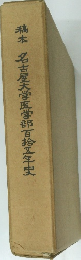 稿本 名古屋大学医学部百拾五年史